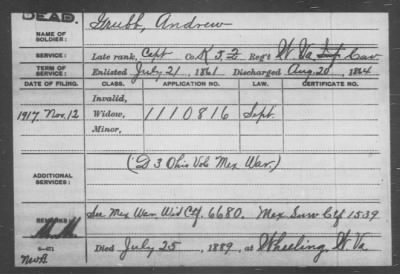 DEAD.
NAME OF SOLDIER: Grubb, Andrew
SERVICE: Late rank, Capt Co. K 5, Reg't W. Va Inf Cav
TERM OF SERVICE: Enlisted July 21, 1861 Discharged Aug. 20, 1864
DATE OF FILING. CLASS. APPLICATION NO. LAW. CERTIFICATE NO.
Invalid,
1917. Nov. 12 Widow, 1110816 Sept.
Minor,
ADDITIONAL SERVICES: (D 3 Ohio Vols Mex War.)
REMARKS See Mex War. Wid Ctf. 6680. Mex Surv Ctf 1539
Died July 25, 1889, at Wheeling, W. Va